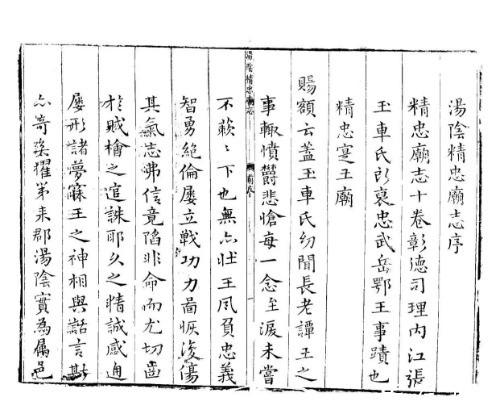 湯陰精忠廟志序
精忠廟志十卷彰德司理内江張
玉車氏所裒忠武岳鄂王事蹟也
精忠寔王廟
賜額云蓋玉車氏幼聞長老譚王之
事輙憤欝悲愴每一念至淚未嘗
不蔌〻下也無亦壯王夙負忠義
智勇絶倫屡立戰功力啚恢復傷
其氣志弗信竟陷非命而尤切齒
扵賊檜之逭誅耶久之精誠感通
屡形諸夢寐王之神相與諮言斯
亦奇矣耀第来郡湯陰實為属邑